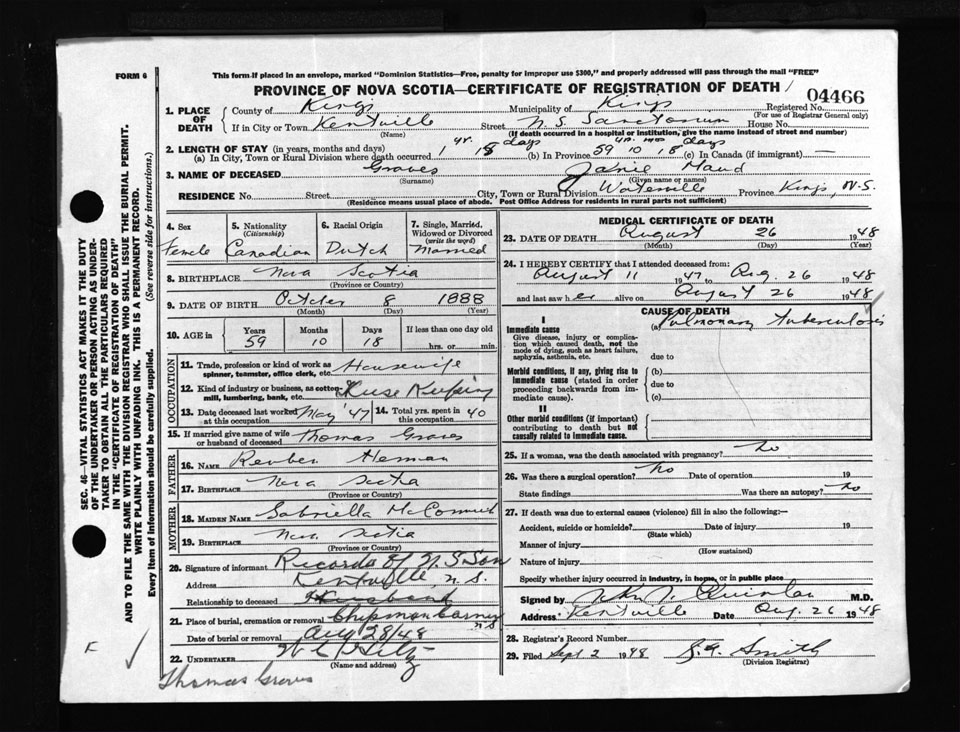 FORM 6
This form if placed in an envelope, marked "Dominion Statistics—Free, penalty for improper use $300," and properly addressed will pass through the mail "FREE"
PROVINCE OF NOVA SCOTIA—CERTIFICATE OF REGISTRATION OF DEATH
04466
1. PLACE OF DEATH County of Kings Municipality of Kings Registered No.
(For use of Registrar General only)
If in City or Town Kentville Street N.S. Sanatorium House No.
(Name) (If death occurred in a hospital or institution, give the name instead of street and number)
2. LENGTH OF STAY (in years, months and days)
(a) In City, Town or Rural Division where death occurred 1 yr. 15 days (b) In Province 59 yrs 10 mos 18 days (c) In Canada (if immigrant) —
3. NAME OF DECEASED Graves Janie Maud
(Surname) (Given name or names)
RESIDENCE No. Street City, Town or Rural Division Waterville Province Kings, N.S.
(Residence means usual place of abode. Post Office Address for residents in rural parts not sufficient)
4. Sex 5. Nationality (Citizenship) 6. Racial Origin 7. Single, Married, Widowed or Divorced (write the word)
Female Canadian Dutch Married
8. BIRTHPLACE Nova Scotia
(Province or Country)
9. DATE OF BIRTH October 8 1888
(Month) (Day) (Year)
10. AGE in Years Months Days If less than one day old
59 10 18 hrs. or min.
OCCUPATION
11. Trade, profession or kind of work as spinner, teamster, office clerk, etc. Housewife
12. Kind of industry or business, as cotton mill, lumbering, bank, etc. House Keeping
13. Date deceased last worked at this occupation May '47 14. Total yrs. spent in this occupation 40
15. If married give name of wife or husband of deceased Thomas Graves
FATHER
16. NAME Reuben
17. BIRTHPLACE Nova Scotia
(Province or Country)
MOTHER
18. MAIDEN NAME Gabriella
19. BIRTHPLACE Nova Scotia
(Province or Country)
20. Signature of informant Records of N.S. San
Address Kentville N.S.
Relationship to deceased Husband
21. Place of burial, cremation or removal Chipman Corner N.S.
Date of burial or removal Aug 28/48
22. UNDERTAKER
(Name and address)
Thomas Graves
MEDICAL CERTIFICATE OF DEATH
23. DATE OF DEATH August 26 1948
(Month) (Day) (Year)
24. I HEREBY CERTIFY that I attended deceased from:
August 11 1947 to Aug. 26 1948
and last saw her alive on August 26 1948
CAUSE OF DEATH
I
Immediate cause (a) Pulmonary Tuberculosis
Give disease, injury or complication which caused death, not the mode of dying, such as heart failure, asphyxia, asthenia, etc.
due to
Morbid conditions, if any, giving rise to immediate cause (stated in order proceeding backwards from immediate cause).
(b)
due to
(c)
II
Other morbid conditions (if important) contributing to death but not causally related to immediate cause.
25. If a woman, was the death associated with pregnancy? No
26. Was there a surgical operation? No Date of operation 19
State findings Was there an autopsy? No
27. If death was due to external causes (violence) fill in also the following:—
Accident, suicide or homicide? Date of injury 19
(State which)
Manner of injury
(How sustained)
Nature of injury
Specify whether injury occurred in industry, in home, or in public place
Signed by Quinlan M.D.
Address Kentville Date Aug. 26 1948
28. Registrar's Record Number
29. Filed Sept 2 1948 Smith
(Division Registrar)
SEC. 46—VITAL STATISTICS ACT MAKES IT THE DUTY
OF THE UNDERTAKER OR PERSON ACTING AS UNDERTAKER
TO OBTAIN ALL THE PARTICULARS REQUIRED
IN THE "CERTIFICATE OF REGISTRATION OF DEATH"
AND TO FILE THE SAME WITH THE DIVISION REGISTRAR WHO SHALL ISSUE THE BURIAL PERMIT.
WRITE PLAINLY WITH UNFADING INK. THIS IS A PERMANENT RECORD.
Every item of Information should be carefully supplied. (See reverse side for instructions.)
F